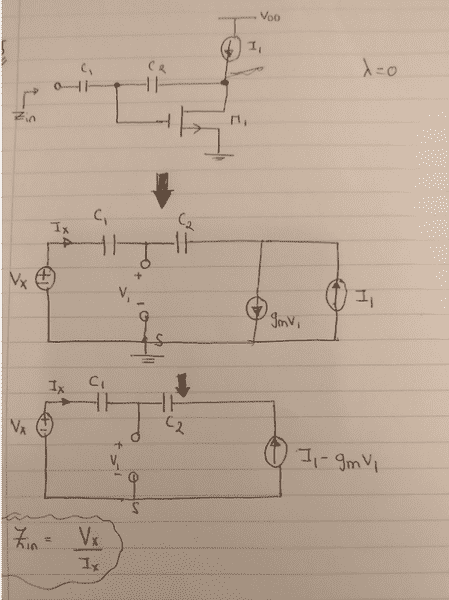 VDD
I1
C1 C2 λ=0
Zin M1
Ix C1 C2
Vx + - + V1 - gmV1 I1
S
Ix C1 C2
Vx + - + V1 - I1 - gmV1
S
Zin = Vx
Ix